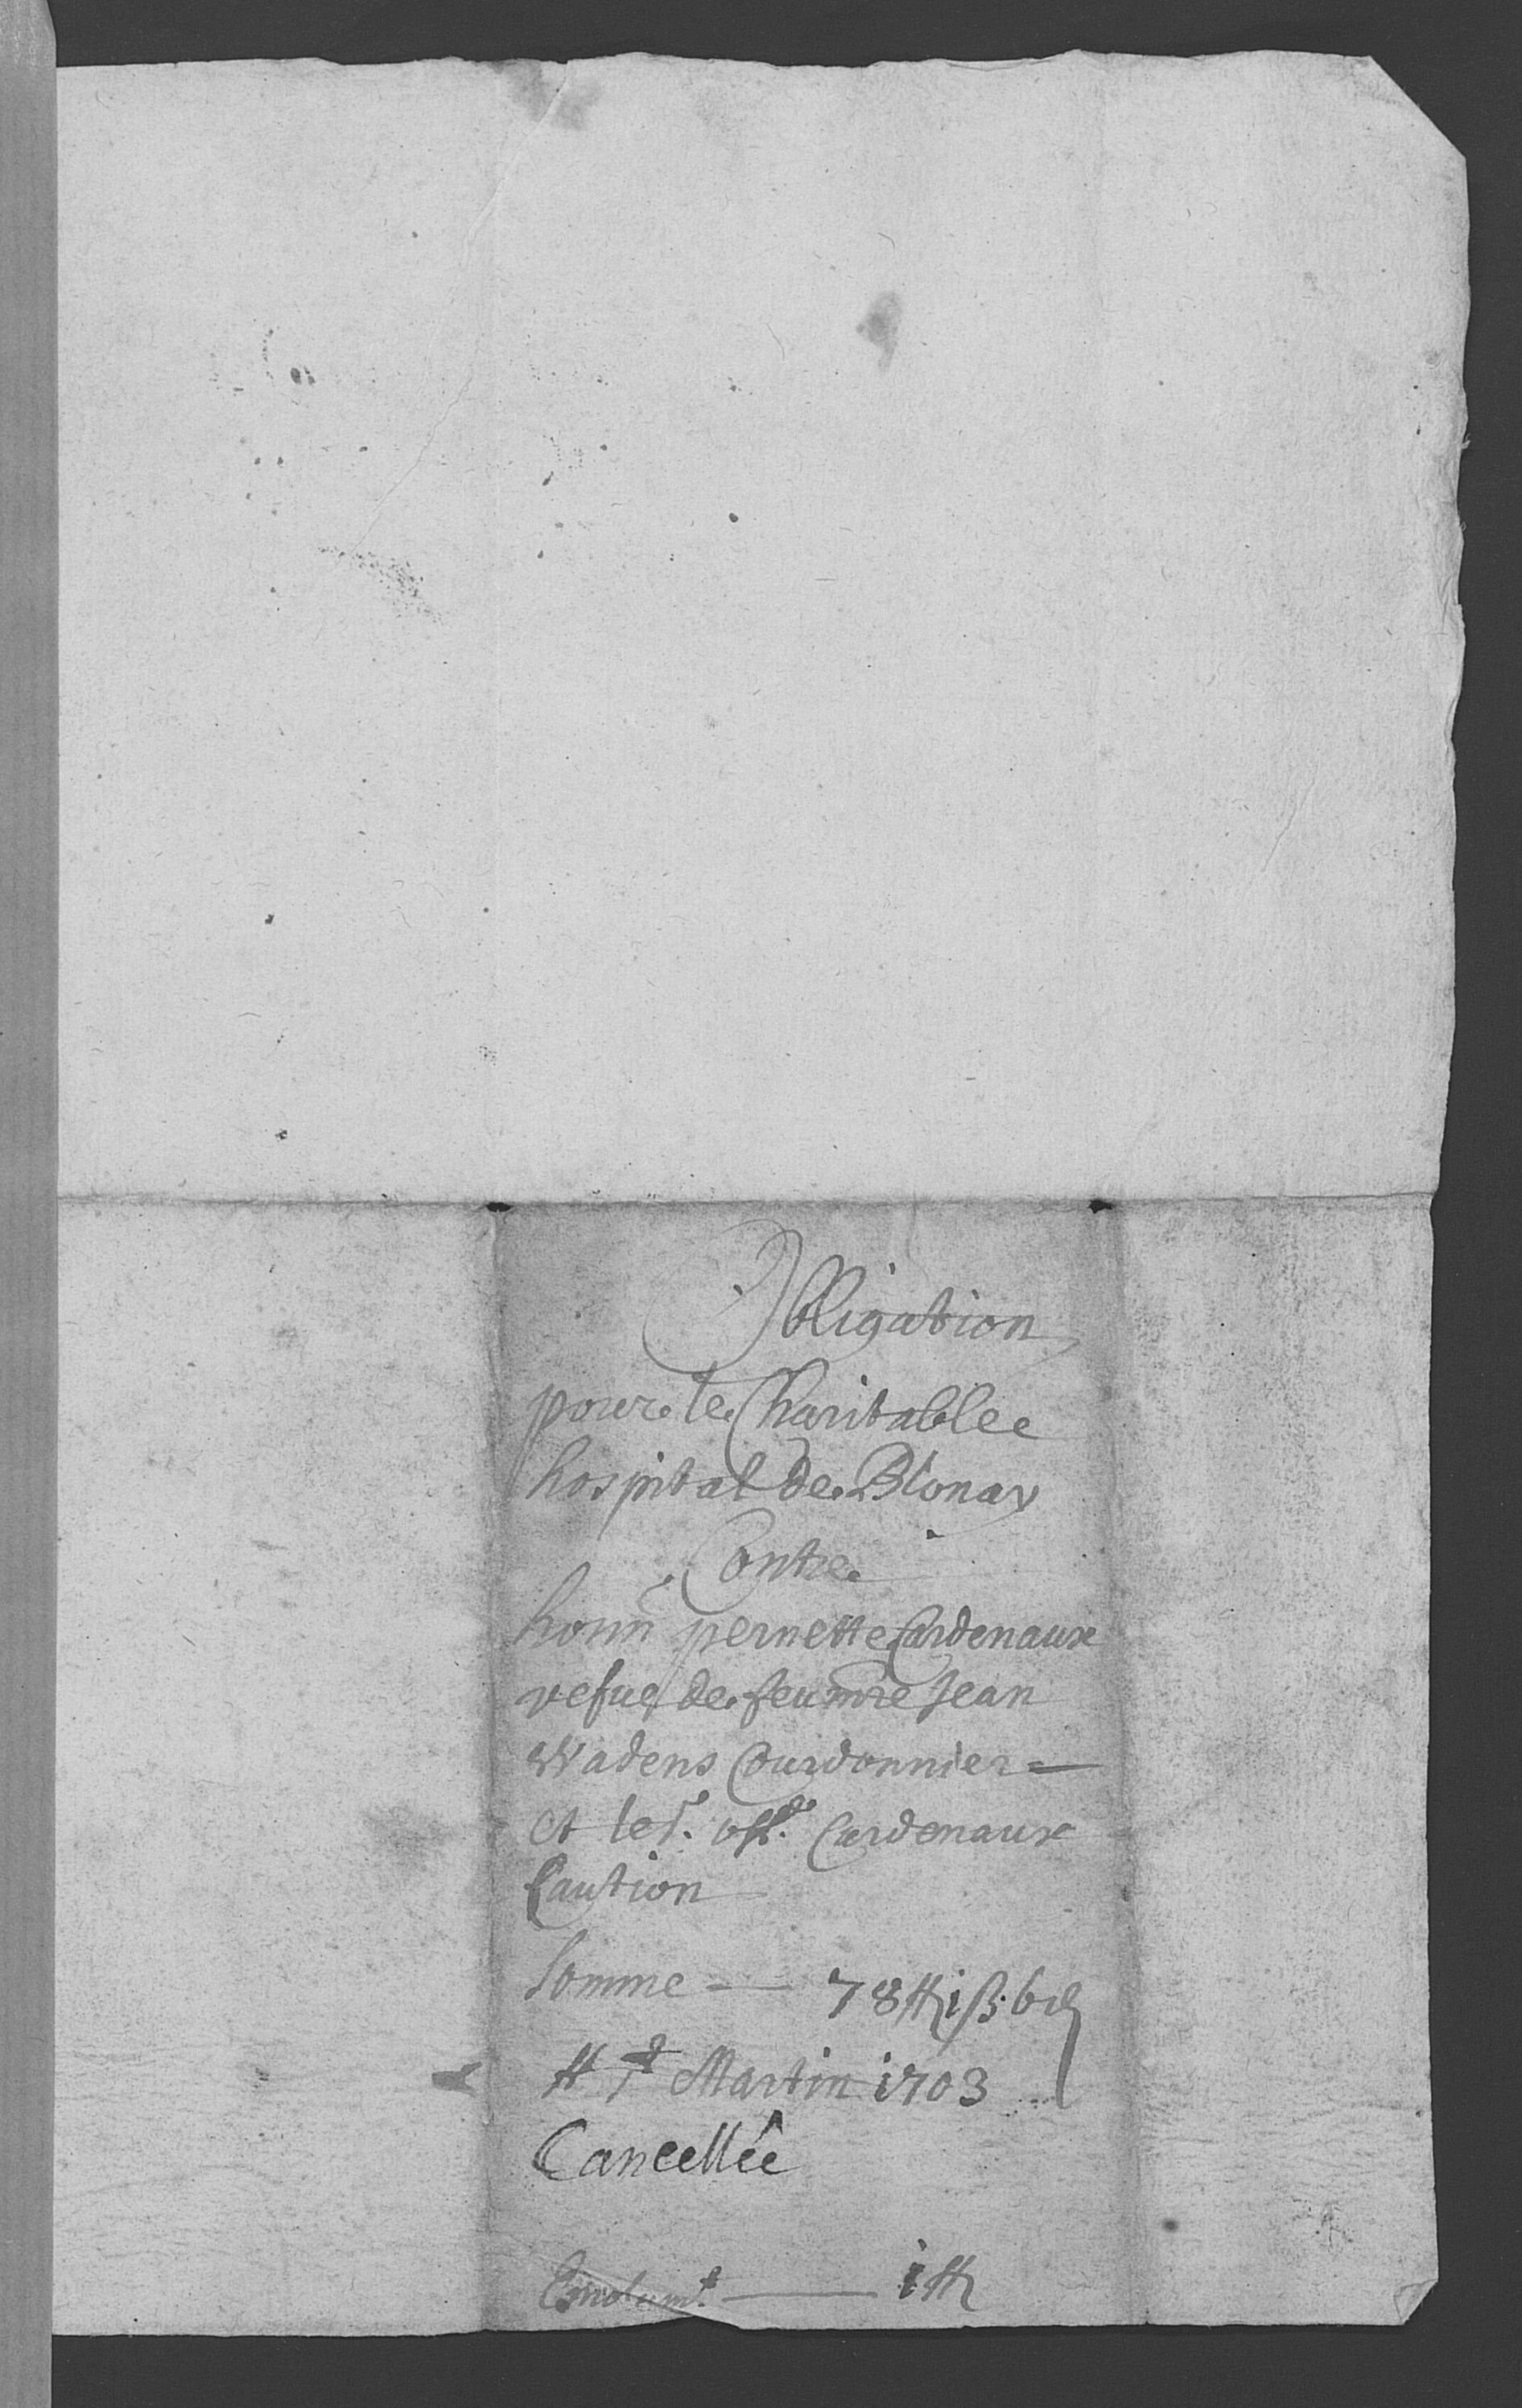 Obligation
pour le Charitablee
hospital de Blonay
Contre
honn pernette Cardenaux
vefue de feu mre Jean
Wadens Courdonnier =
et le Sr. Cardenaux
Caution
Somme — 78 ℔ 1 ß. 6 d
St Martin 1703
Cancellée
Emolumt. — 1 ℔